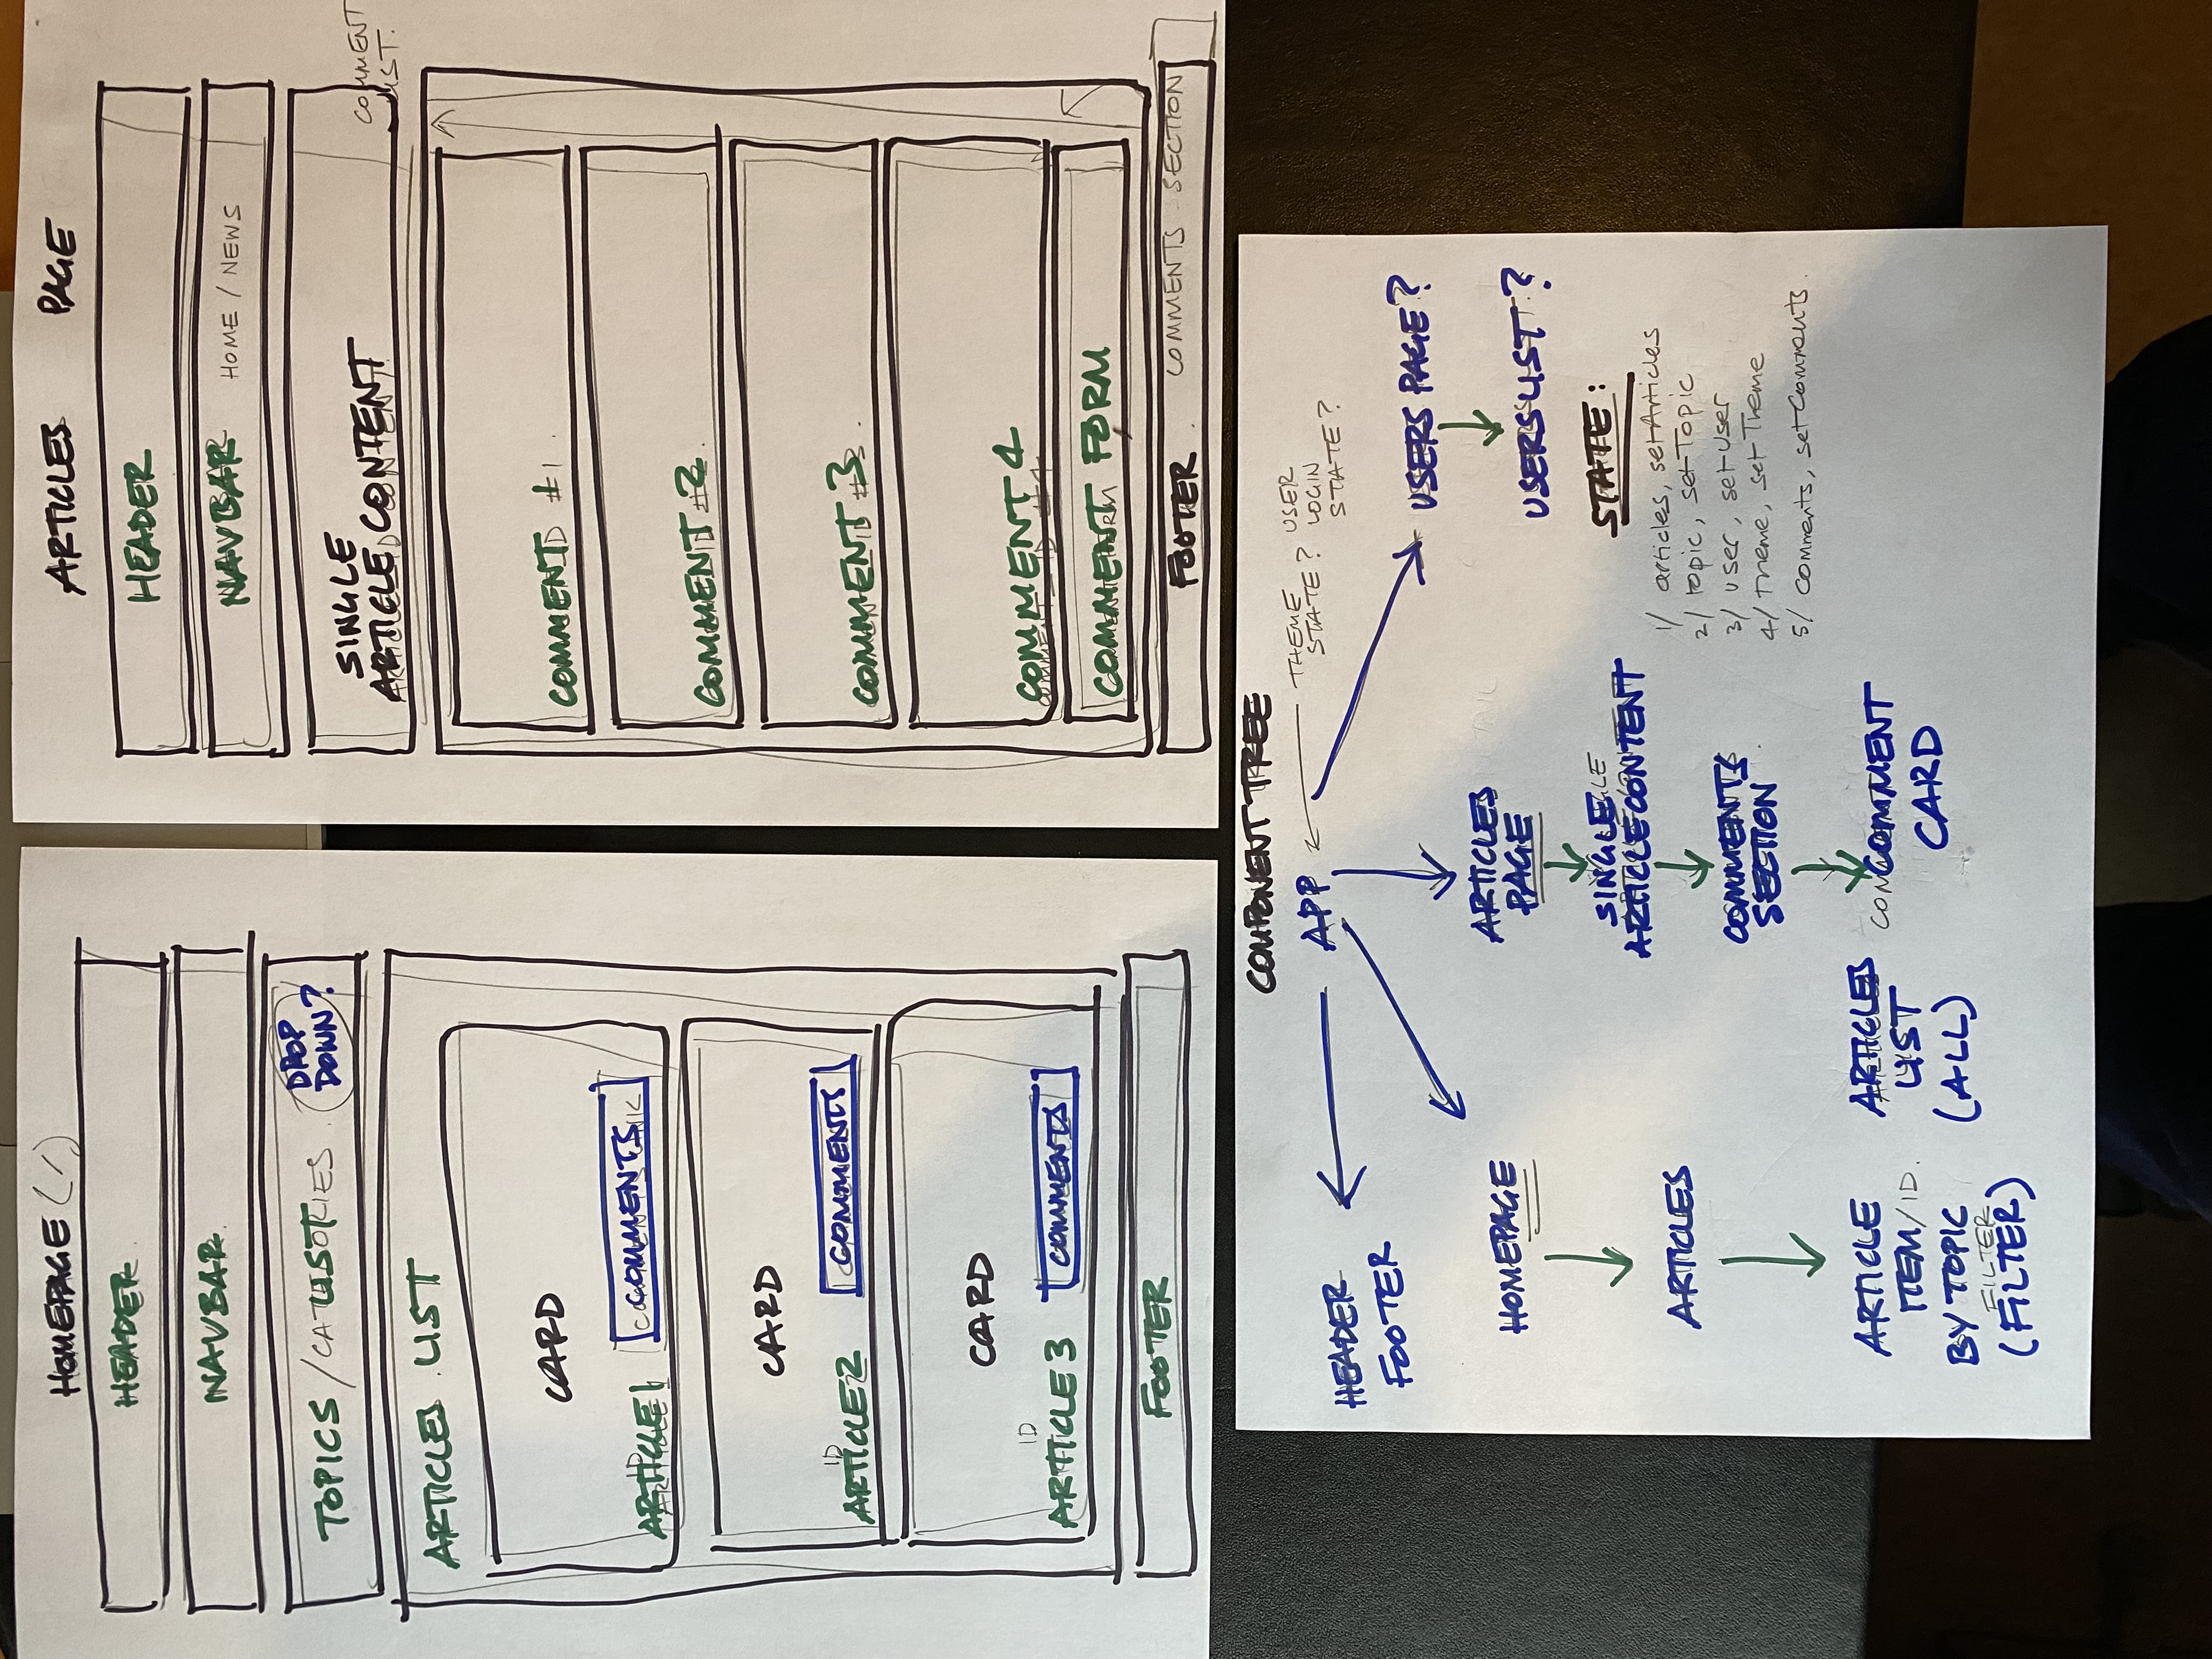 HOMEPAGE (/)
HEADER
NAVBAR
TOPICS / CATEGORIES LIST
DROP
DOWN?
ARTICLES LIST
CARD
ID
ARTICLE 1
COMMENTS
CARD
ID
ARTICLE 2
COMMENTS
CARD
ID
ARTICLE 3
COMMENTS
FOOTER
ARTICLES PAGE
HEADER
NAVBAR HOME / NEWS
SINGLE
ARTICLE CONTENT
COMMENT
LIST.
COMMENT 1
COMMENT 2
COMMENT 3
COMMENT 4
COMMENT FORM
FOOTER COMMENTS SECTION
COMPONENT TREE
APP
THEME
STATE?
USER
LOGIN
STATE?
HEADER
FOOTER
HOMEPAGE
ARTICLES
ARTICLE
ITEM/ID.
BY TOPIC
FILTER
(FILTER)
ARTICLES
LIST
(ALL)
ARTICLES
PAGE
SINGLE
ARTICLE CONTENT
COMMENTS
SECTION
COMMENT
CARD
USERS PAGE?
USERS LIST?
STATE:
1/ articles, setArticles
2/ topic, setTopic
3/ user, setUser
4/ Theme, setTheme
5/ comments, setComments.